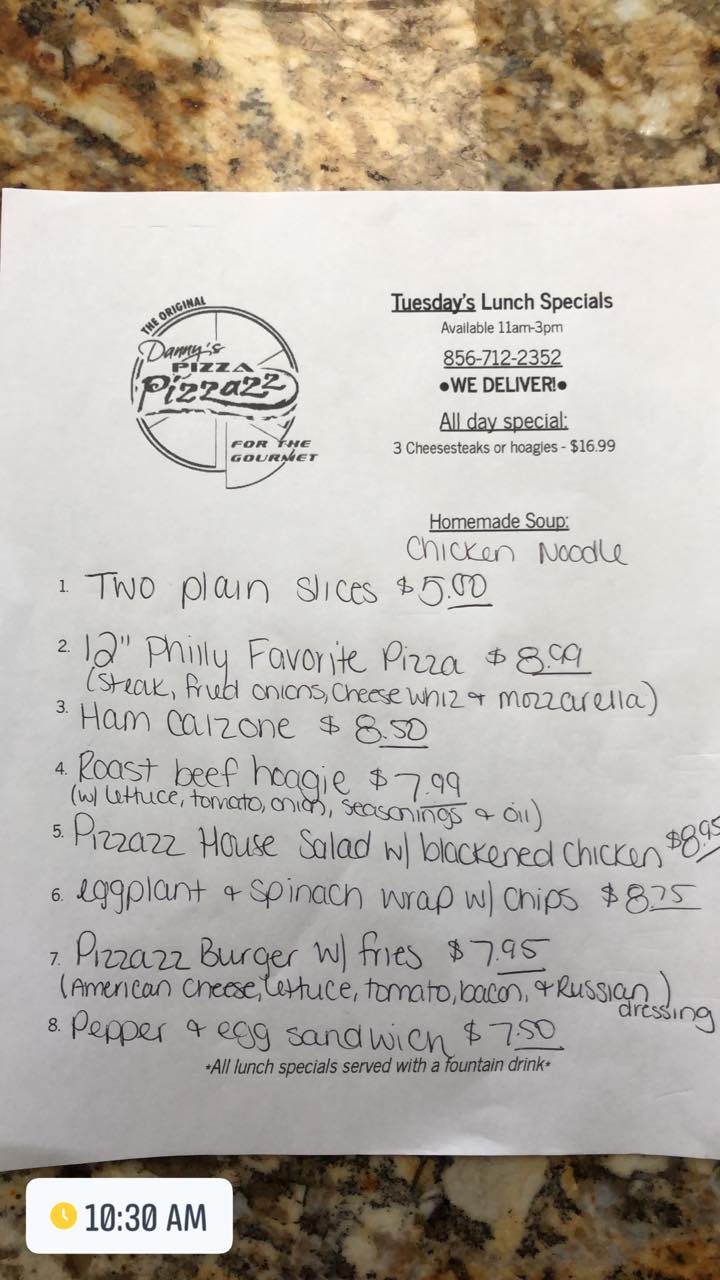 THE ORIGINAL
Danny's
PIZZA
Pizzazz
FOR THE
GOURMET
Tuesday's Lunch Specials
Available 11am-3pm
856-712-2352
•WE DELIVER!•
All day special:
3 Cheesesteaks or hoagies - $16.99
Homemade Soup:
Chicken Noodle
1. Two plain slices $5.00
2. 12" Philly Favorite Pizza $8.99
(Steak, fried onions, cheese whiz & mozzarella)
3. Ham calzone $8.50
4. Roast beef hoagie $7.99
(w/ lettuce, tomato, onion, seasonings & oil)
5. Pizzazz House Salad w/ blackened chicken $8.95
6. eggplant & spinach wrap w/ chips $8.75
7. Pizzazz Burger w/ fries $7.95
(American cheese, lettuce, tomato, bacon, & Russian dressing)
8. Pepper & egg sandwich $7.50
*All lunch specials served with a fountain drink*
10:30 AM